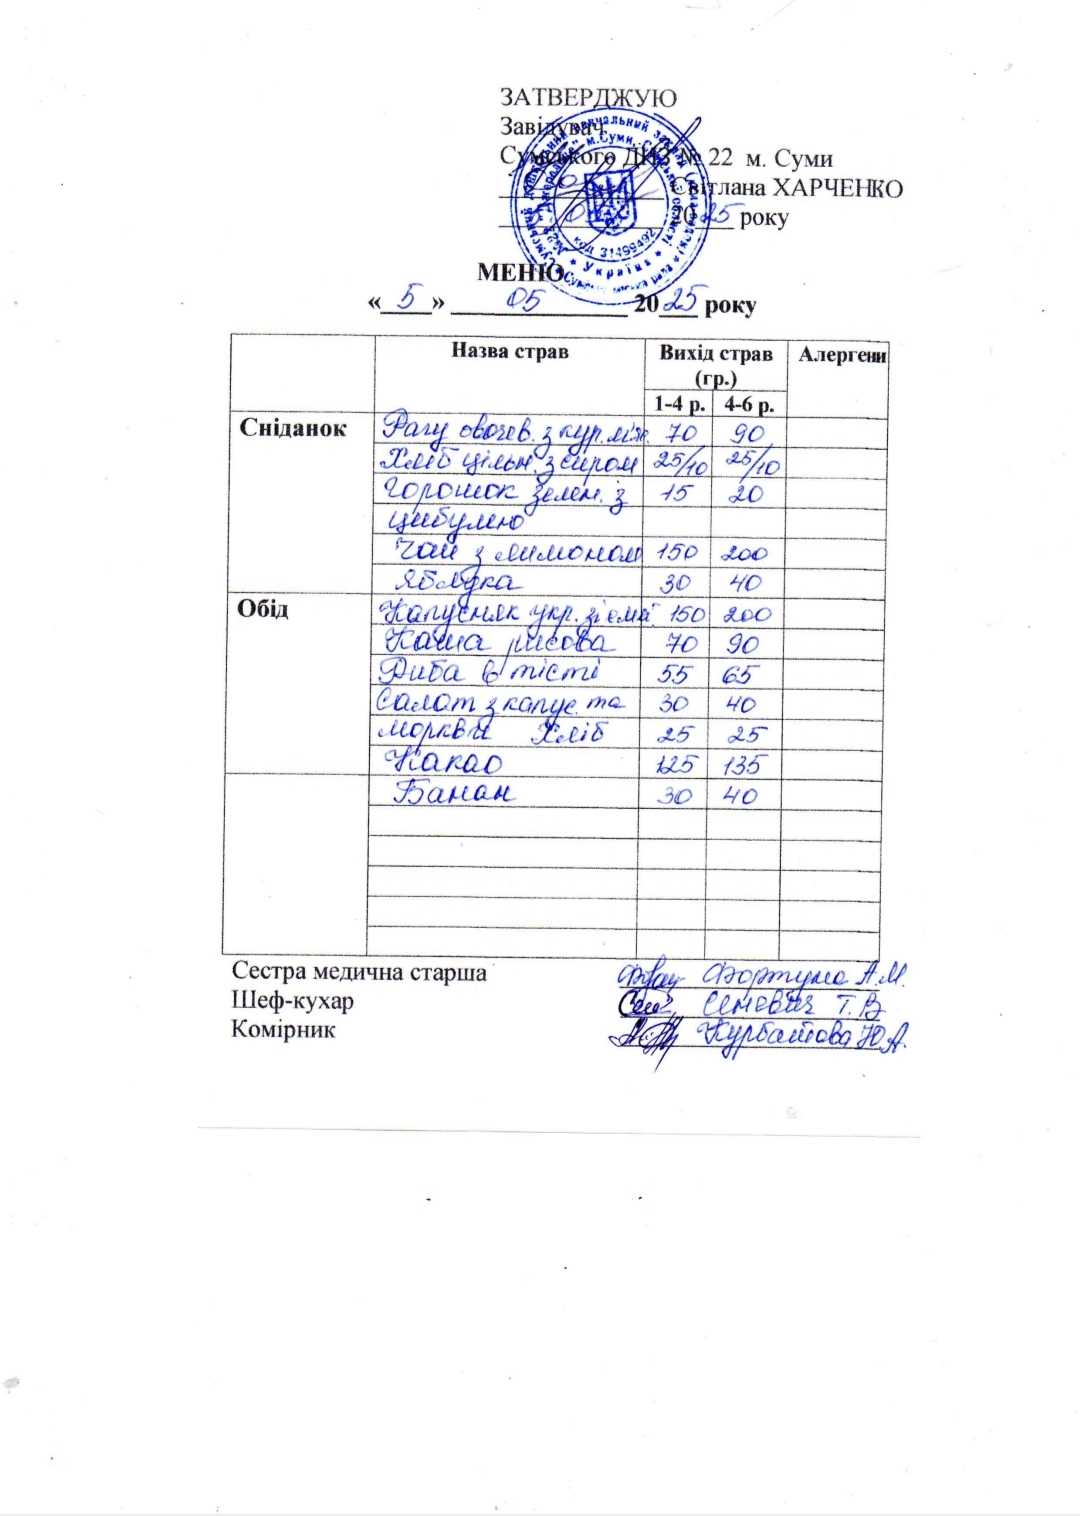 ЗАТВЕРДЖУЮ
Завідувач
Сумського ДНЗ № 22 м. Суми
Світлана ХАРЧЕНКО
05 2025 року
код 31499492
Україна
МЕНЮ
« 5 » 05 2025 року
Назва страв Вихід страв (гр.) Алергени
1-4 р. 4-6 р.
Сніданок Рагу овочев. з кур. м'яс. 70 90
Хліб цільн. з сиром 25/10 25/10
Горошок зелен. з 15 20
цибулею
Чай з лимоном 150 200
Яблука 30 40
Обід Капусняк укр. зі смет. 150 200
Каша рисова 70 90
Риба в тісті 55 65
Салат з капус. та 30 40
моркви Хліб 25 25
Какао 125 135
Банан 30 40
Сестра медична старша Фортуна А.М.
Шеф-кухар Т.В
Комірник Курбатова Ю.А.